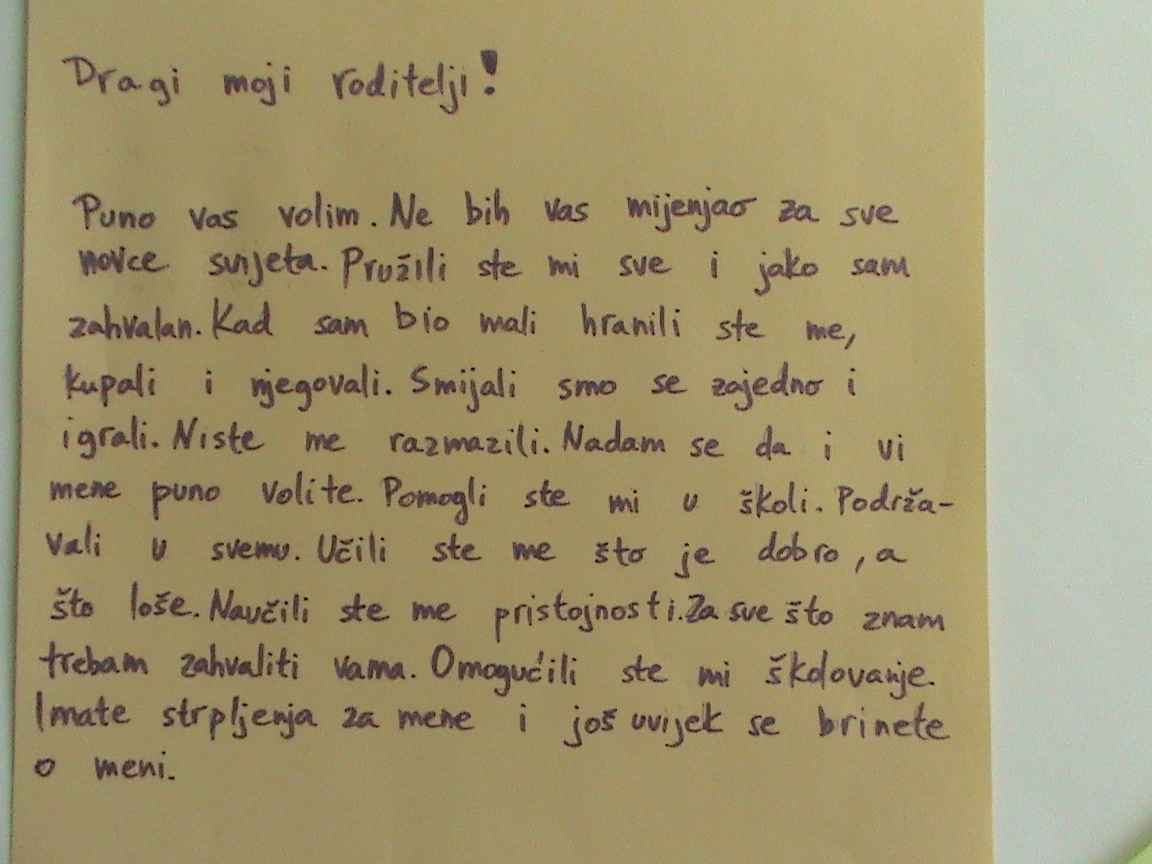 Dragi moji roditelji!
Puno vas volim. Ne bih vas mijenjao za sve
novce svijeta. Pružili ste mi sve i jako sam
zahvalan. Kad sam bio mali hranili ste me,
kupali i njegovali. Smijali smo se zajedno i
igrali. Niste me razmazili. Nadam se da i vi
mene puno volite. Pomogli ste mi u školi. Podrža-
vali u svemu. Učili ste me što je dobro, a
što loše. Naučili ste me pristojnosti. Za sve što znam
trebam zahvaliti vama. Omogućili ste mi školovanje.
Imate strpljenja za mene i još uvijek se brinete
o meni.